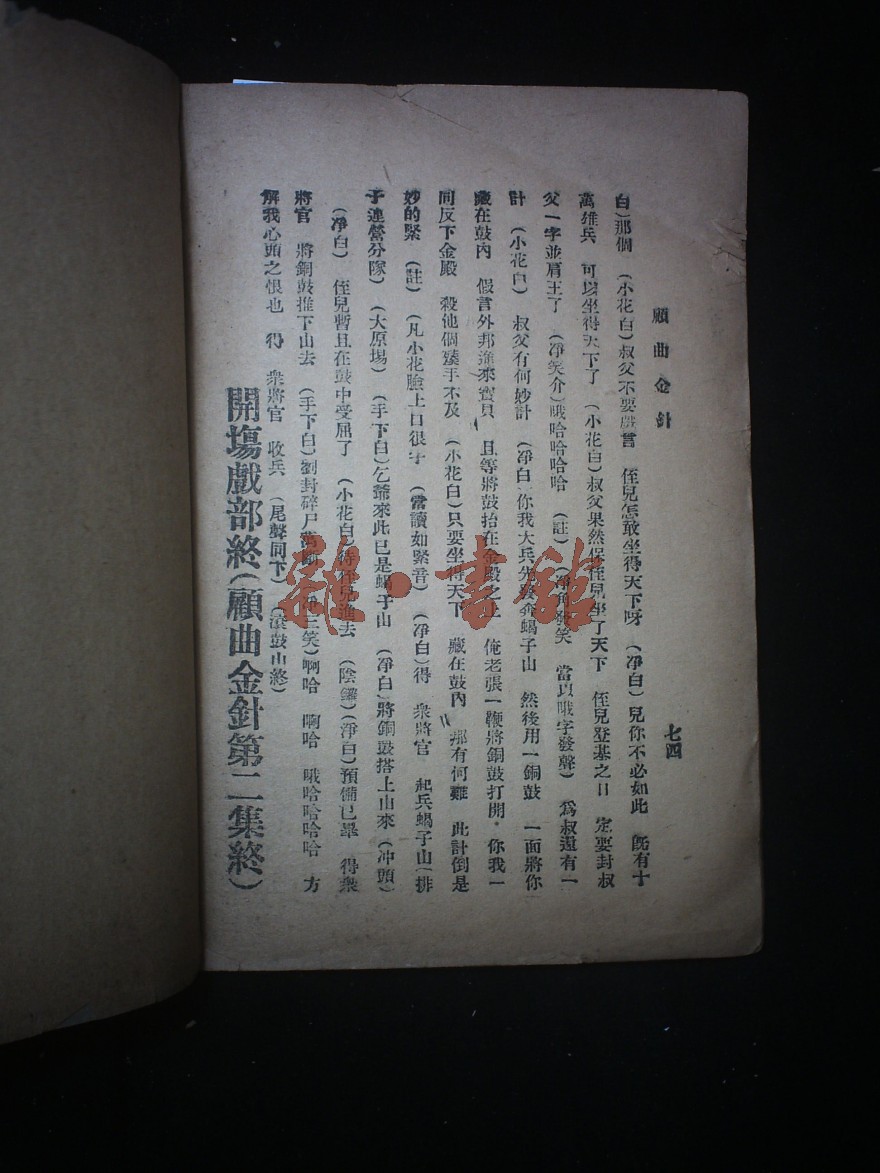 顧曲金針
七四
白)那個 (小花白)叔父不要戲言 侄兒怎敢坐得天下呀 (淨白)兒你不必如此 旣有十
萬雄兵 可以坐得天下了 (小花白)叔父果然保侄兒坐了天下 侄兒登基之日 定要封叔
父一字並肩王了 (淨笑介)哦哈哈哈哈 (註) (淨角發笑 當以哦字發聲) 爲叔還有一
計 (小花白) 叔父有何妙計 (淨白)你我大兵先發奔蝎子山 然後用一銅鼓 一面將你
藏在鼓內 假言外邦進來寶貝 且等將鼓抬在金殿之上 俺老張一鞭將銅鼓打開·你我一
同反下金殿 殺他個措手不及 (小花白)只要坐得天下 藏在鼓內 那有何難 此計倒是
妙的緊 (註) (凡小花臉上口很字 (當讀如緊音) (淨白)得 衆將官 起兵蝎子山(排
子連營分隊) (大原場) (手下白)乞爺來此已是蝎子山 (淨白)將銅鼓搭上山來(冲頭)
(淨白) 侄兒暫且在鼓中受屈了 (小花白)待侄兒進去 (陰鑼)(淨白)預備已畢 得衆
將官 將銅鼓推下山去 (手下白)劉封碎尸 淨三笑)啊哈 啊哈 哦哈哈哈哈 方
解我心頭之恨也 得 衆將官 收兵 (尾聲同下) (滾鼓山終)
開塲戲部終(顧曲金針第二集終)
雜·書館